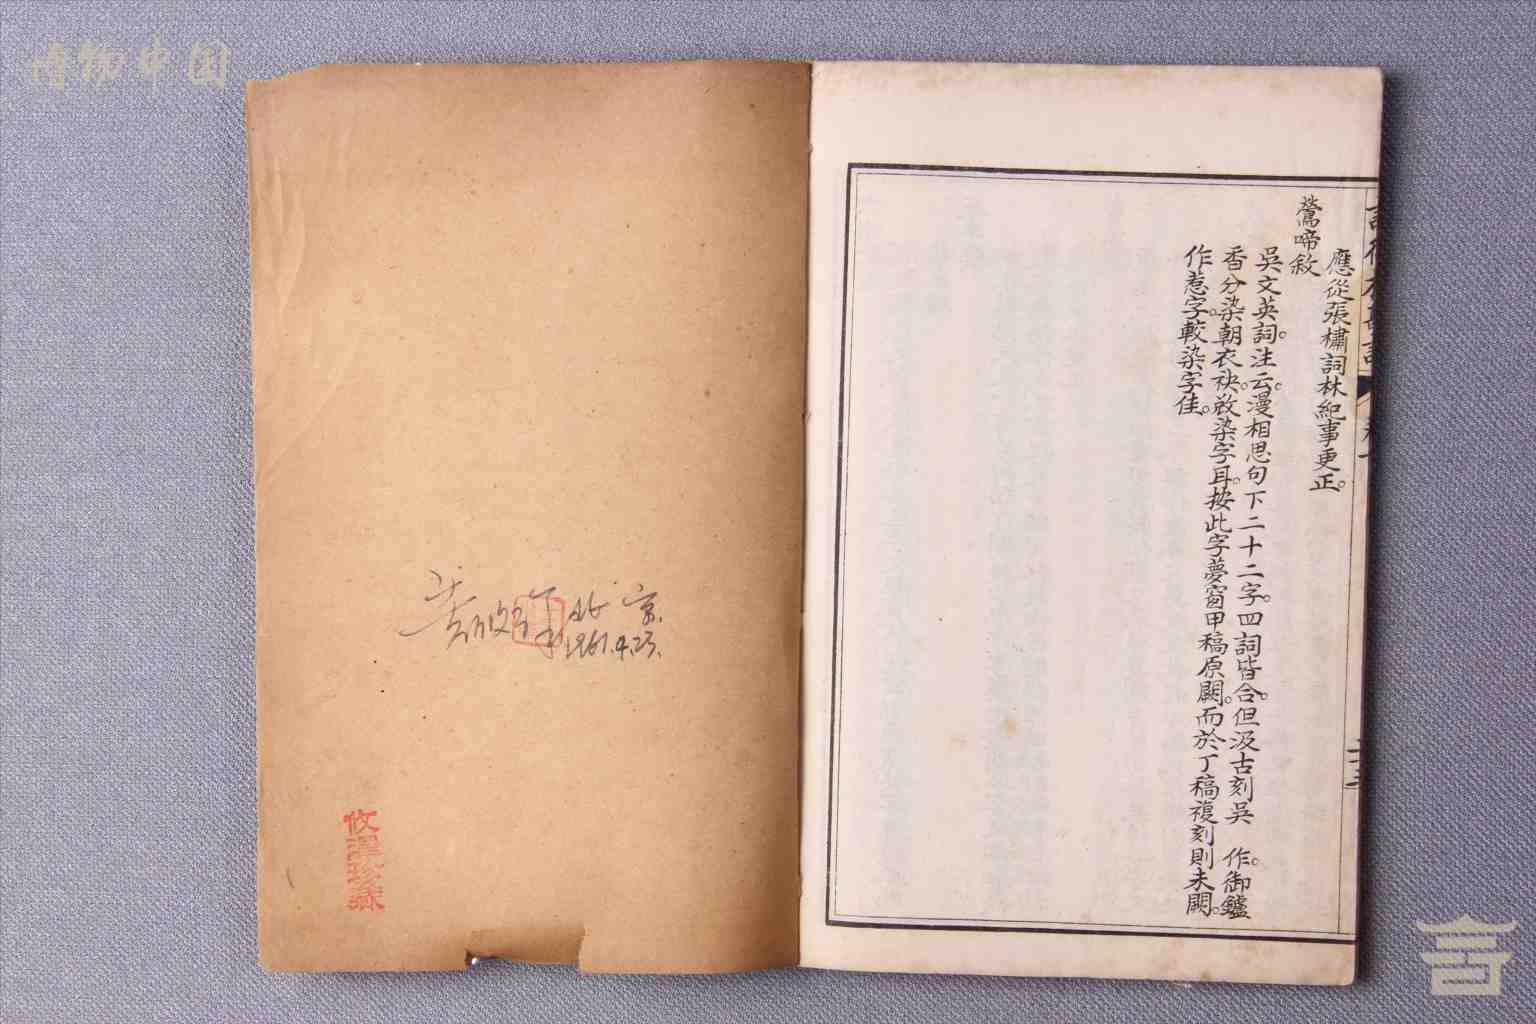 應從張橚詞林紀事更正。
鶯啼敘
吳文英詞。注云。漫相思句下二十二字。四詞皆合。但汲古刻吳 作。御鑪
香分染朝衣袂。效染字耳。按此字夢窗甲稿原闕。而於丁稿複刻則未闕。
作惹字。較染字佳。
北京
1961.4.23.
攸澤珍藏
博物中国